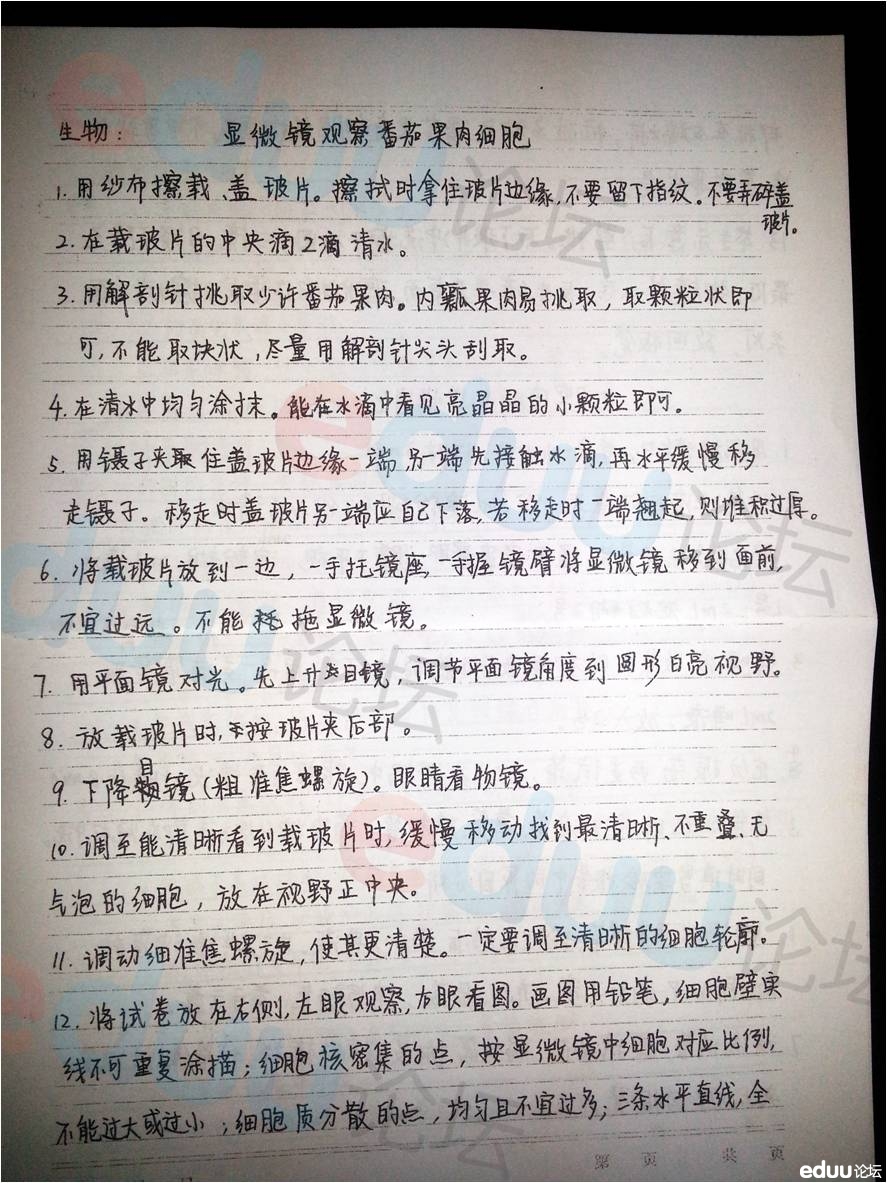 生物： 显微镜观察番茄果肉细胞
1. 用纱布擦载、盖玻片。擦拭时拿住玻片边缘，不要留下指纹。不要弄碎盖
玻片。
2. 在载玻片的中央滴2滴清水。
3. 用解剖针挑取少许番茄果肉。内瓤果肉易挑取，取颗粒状即
可，不能取块状，尽量用解剖针尖头刮取。
4. 在清水中均匀涂抹。能在水滴中看见亮晶晶的小颗粒即可。
5. 用镊子夹取住盖玻片边缘一端，另一端先接触水滴，再水平缓慢移
走镊子。移走时盖玻片另一端应自己下落，若移走时一端翘起，则堆积过厚。
6. 将载玻片放到一边，一手托镜座，一手握镜臂将显微镜移到面前，
不宜过远。不能拖显微镜。
7. 用平面镜对光。先上升目镜，调节平面镜角度到圆形白亮视野。
8. 放载玻片时，按玻片夹后部。
9. 下降目镜(粗准焦螺旋)。眼睛看物镜。
10. 调至能清晰看到载玻片时，缓慢移动找到最清晰、不重叠、无
气泡的细胞，放在视野正中央。
11. 调动细准焦螺旋，使其更清楚。一定要调至清晰的细胞轮廓。
12. 将试卷放在右侧，左眼观察，右眼看图。画图用铅笔，细胞壁实
线不可重复涂描；细胞核密集的点，按显微镜中细胞对应比例，
不能过大或过小；细胞质分散的点，均匀且不宜过多；三条水平直线，全
第 页 共 页
eduu论坛